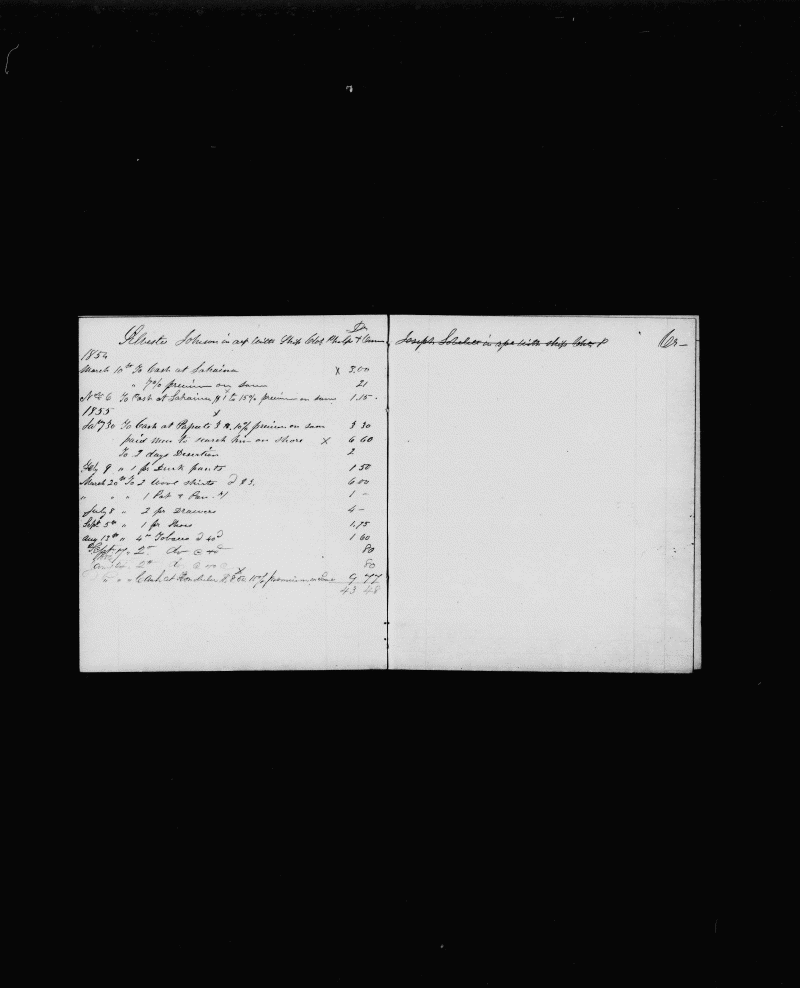 Johnson in a/c with Ship Chs Phelps & Own Dr
1854
March 10th To Cash at Lahaina x 3.00
" 7% premium on same 21
Nov 6 To Cash at Lahaina $1 & 15% premium on same 1.15
1855 x
Jan 30 To Cash at 10% premium on same 3 30
paid men to search him on shore x 6 60
To 2 days Desertion 2
Feby 9 " 1 pr Duck pants 1 50
March 20th To 2 wool shirts @ $3. 6 00
" " " 1 Pot & Pan 1 –
July 8 " 2 pr Drawers 4 –
Sept 5th " 1 pr Shoes 1,75
Aug 13th " 4 lb Tobacco @ 40 1 60
Sept 17 " 2 lb do @ 40 80
2 lb do @ 80
" " Cash at Honolulu 15% premium on same 9 77
43 48
Joseph in a/c with ship Chs P Cr –